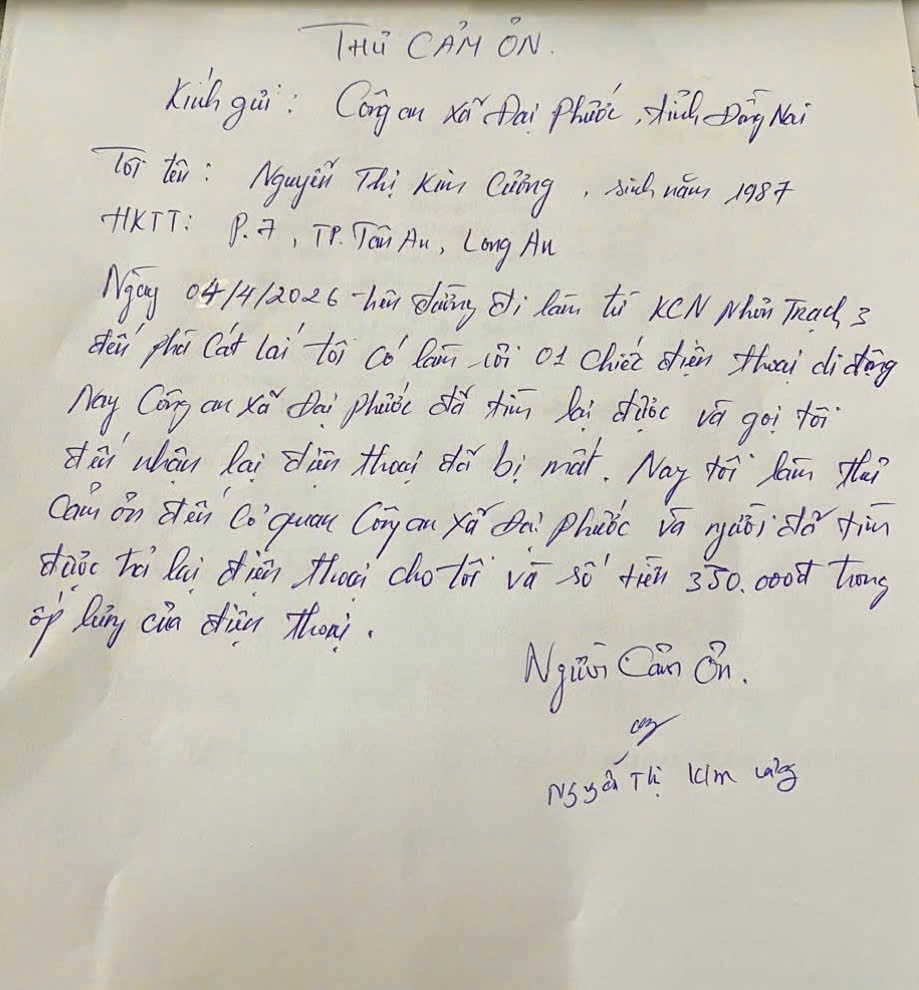 THƯ CẢM ƠN.
Kính gửi: Công an xã Đại Phước, tỉnh Đồng Nai
Tôi tên: Nguyễn Thị Kim Cương, sinh năm 1987
HKTT: P.7, TP. Tân An, Long An
Ngày 04/4/2026 trên đường đi làm từ KCN Nhơn Trạch 3
đến phà Cát Lái tôi có làm rơi 01 chiếc điện thoại di động
Nay Công an xã Đại Phước đã tìm lại được và gọi tôi
đến nhận lại điện thoại đã bị mất. Nay tôi làm thư
cảm ơn đến cơ quan Công an xã Đại Phước và người đã tìm
được trả lại điện thoại cho tôi và số tiền 350.000đ trong
ốp lưng của điện thoại.
Người Cảm Ơn.
Nguyễn Thị Kim Cương